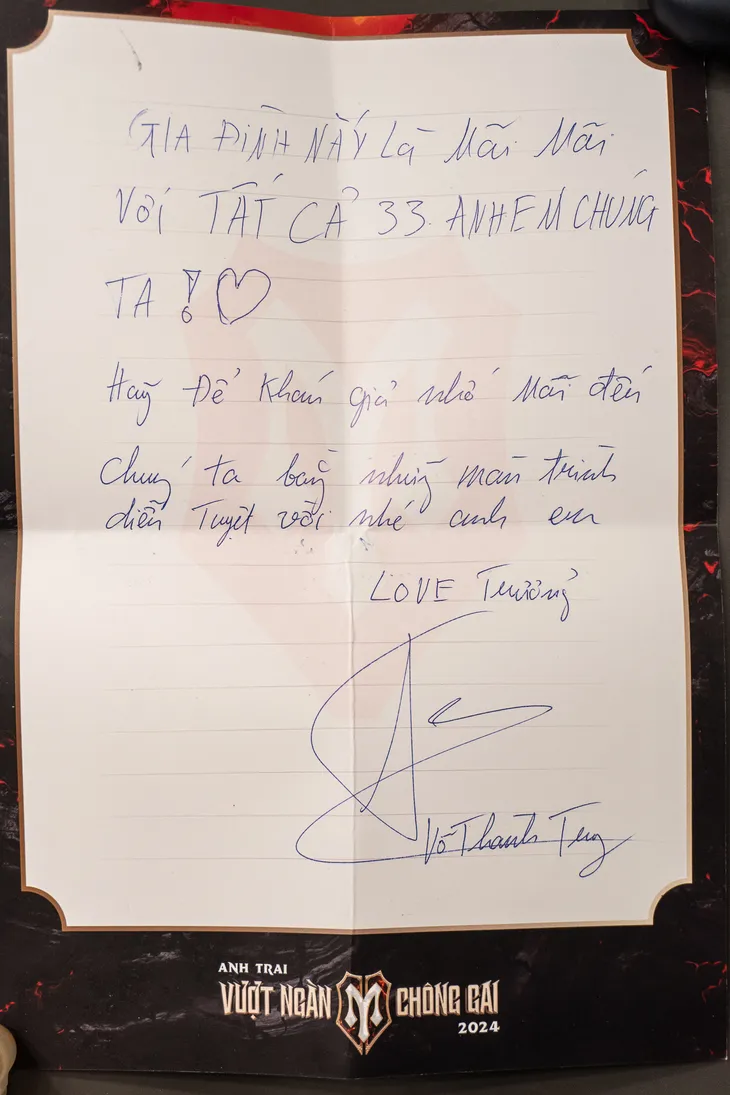 GIA ĐÌNH NÀY Là Mãi Mãi
Với TẤT CẢ 33 ANH EM CHÚNG
TA ! ♡
Hãy Để Khán giả nhớ Mãi đến
chúng ta bằng những màn trình
diễn Tuyệt vời nhé anh em
LOVE Trưởng
Võ Thanh
ANH TRAI
VƯỢT NGÀN CHÔNG GAI
2024